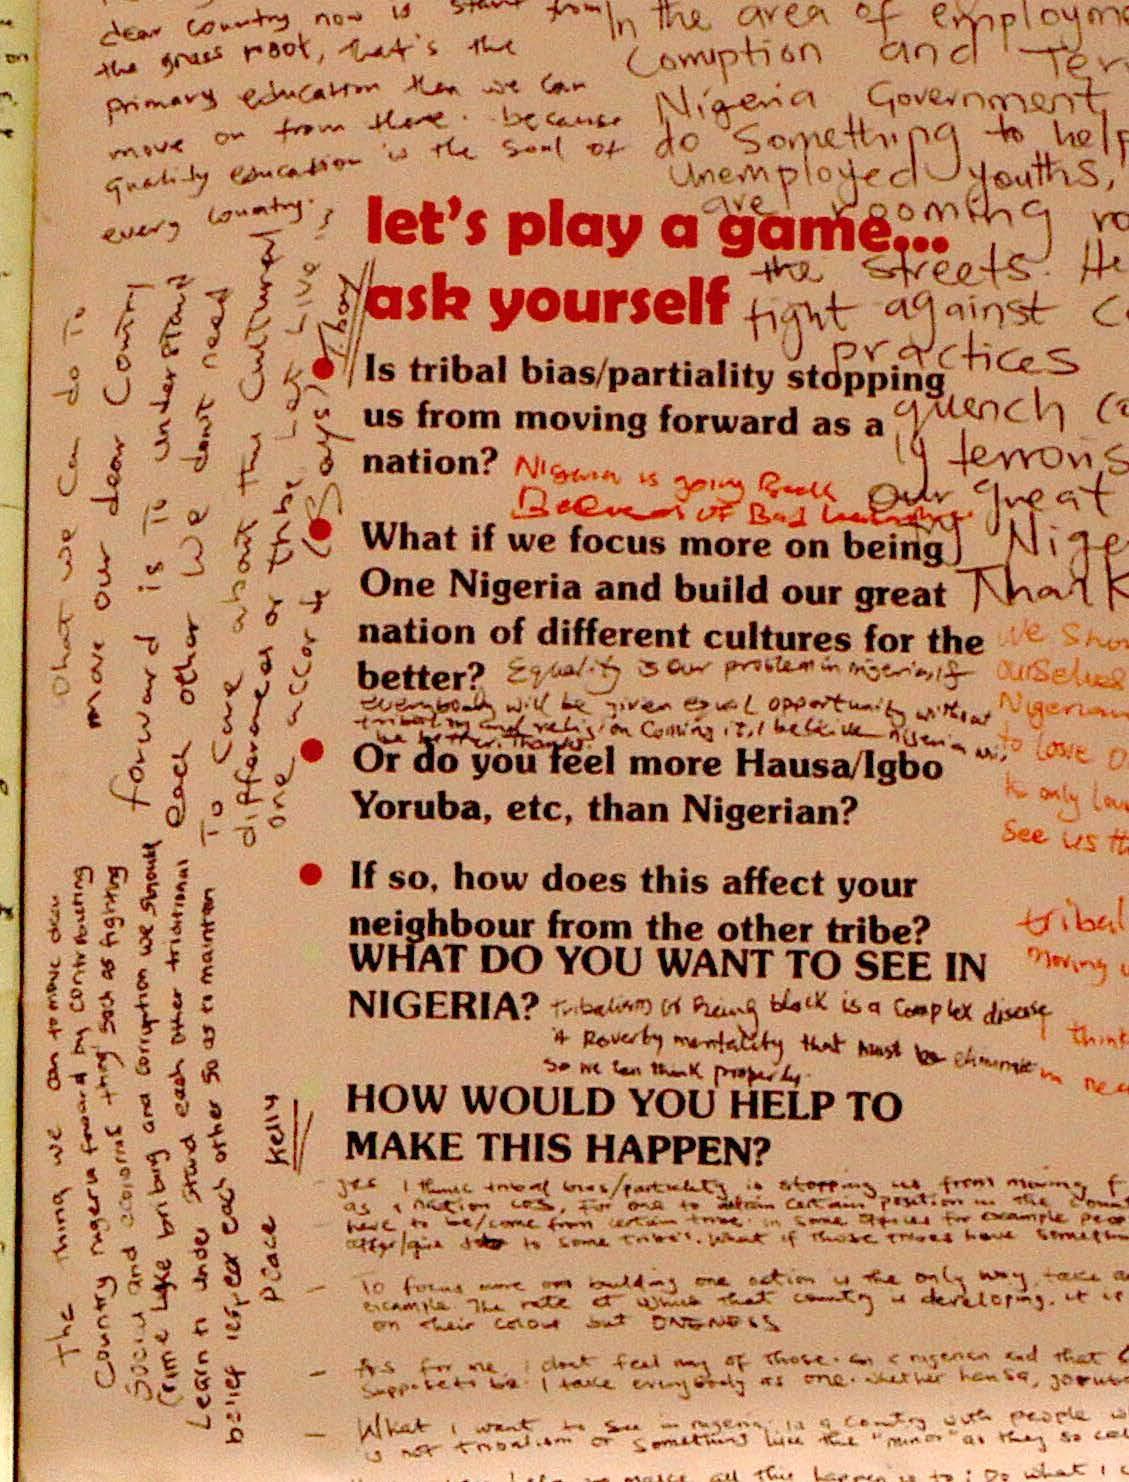 dear country now is start from
the grass root, that's the
primary education then we can
move on from there. because
quality education is the soul of
every country.
In the area of employme
Corruption and Terr
Nigeria Government
do something to help
unemployed youths,
are rooming ro
the streets. He
fight against C
practices
quench
terroris
our great
Nige
Thank
let's play a game...
ask yourself
Is tribal bias/partiality stopping
us from moving forward as a
nation?
Nigeria is going Back
Because of Bad
What if we focus more on being
One Nigeria and build our great
nation of different cultures for the
better?
Equality is our problem in nigeria, if
everybody will be given equal opportunity without
tribalism and religion coming it, I believe Nigeria wi
be better. Thanks.
Or do you feel more Hausa/Igbo
Yoruba, etc, than Nigerian?
If so, how does this affect your
neighbour from the other tribe?
WHAT DO YOU WANT TO SEE IN
NIGERIA?
Tribalism of Being black is a complex disease
A Poverty mentality that must be eliminate
so we can think properly.
HOW WOULD YOU HELP TO
MAKE THIS HAPPEN?
yes I think tribal bias/partiality is stopping us from moving f
as a nation cos, for one to attain certain position in the count
have to be/come from certain tribe. in some offices for example peo
offer/give to some tribes. What if those tribes have somethin
- To focus more on building one nation is the only way, take a
example the rate at which that country is developing. it is
on their colour but ONENESS
- As for me, I dont feel any of those. am a nigerian and that
suppose to be. I take everybody as one. whether hausa, yoruba
- What I want to see in nigeria is a country with people w
is not tribalism or something like the "minor" as they so cal
we make all this happen is to: Do what I
what we can do To
move our dear Country
forward is To understand
each other we dont need
To care about the Cultural
differences or tribe Let Live
one accord (Says) Tboy
The thing we can to move dear
Country nigeria forward by contributing
social and they such as fighting
crime like bribing and corruption we should
Learn to under stand each other traditional
belief respect each other so as to maintain
peace Kelly
We Shou
ourselves
Nigerian
to love o
only lov
see us th
tribal
moving
think